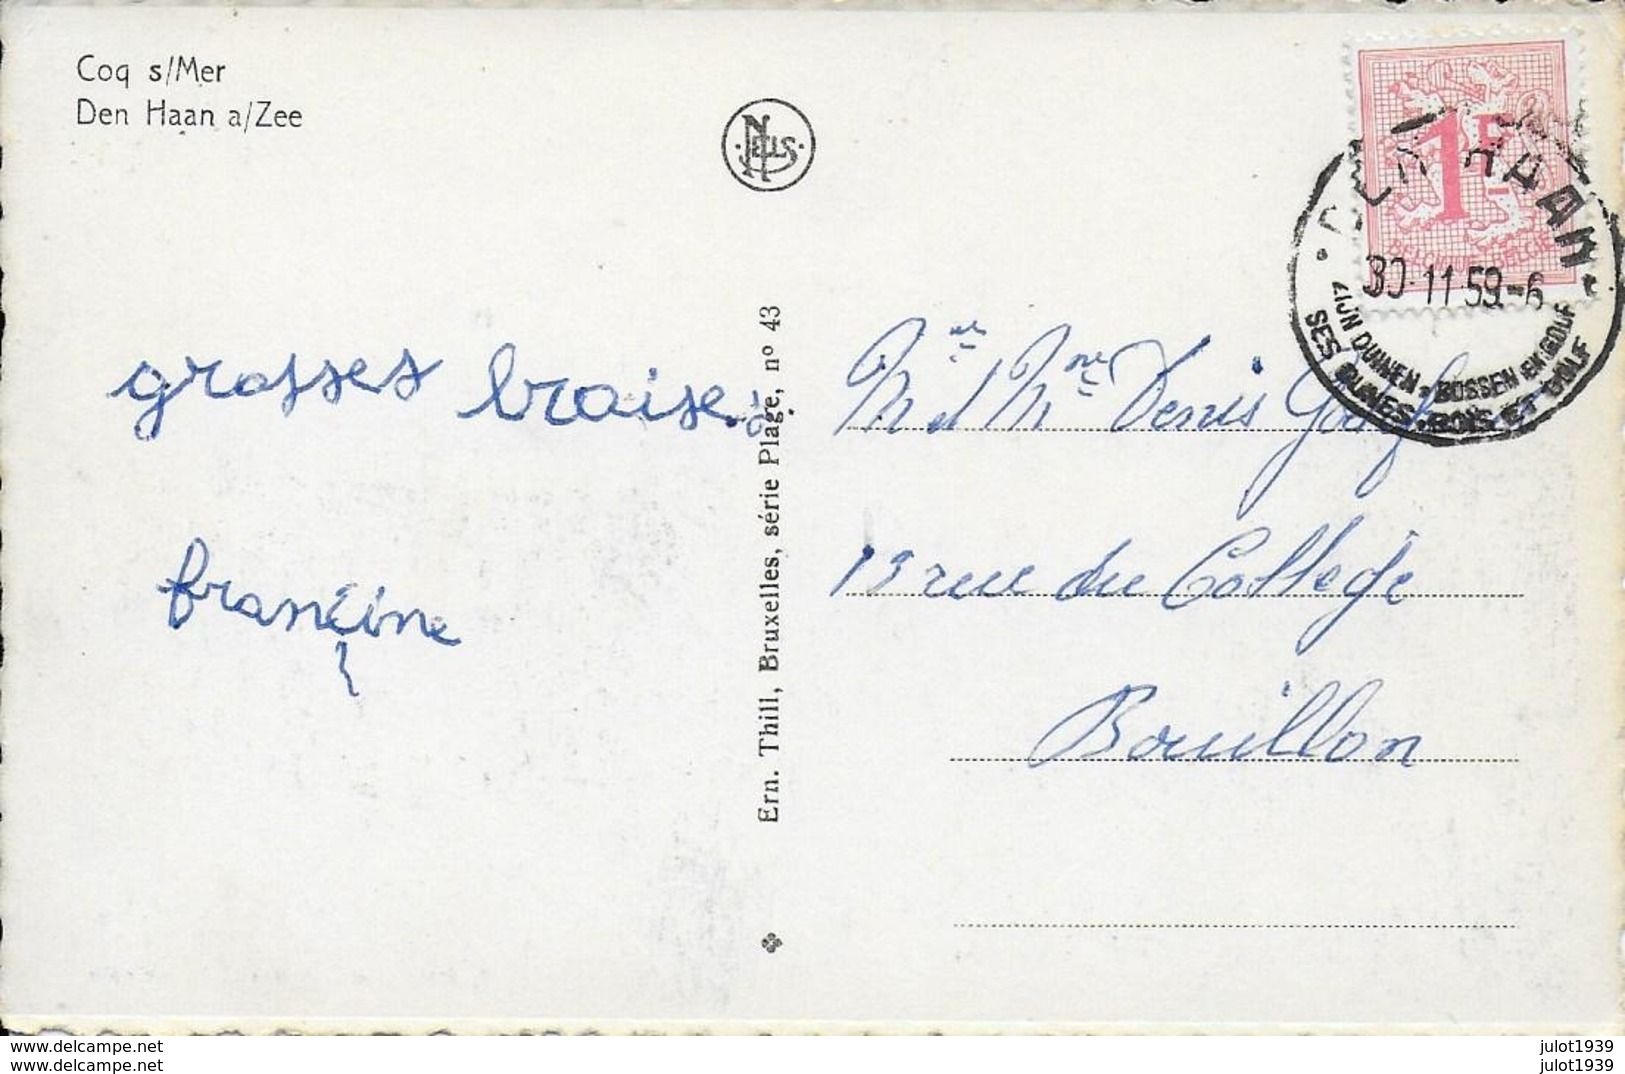 Coq s/Mer
Den Haan a/Zee
NELS
1F
BELGIQUE-BELGIË
DEN HAAN
30-11 59.-6
ZIJN DUINEN • BOSSEN EN GOLF
SES DUNES, BOIS ET GOLF
grosses braises
francine
Ern. Thill, Bruxelles, série Plage, nº 43
Mr et Mme Denis
13 rue du College
Bouillon
www.delcampe.net
www.delcampe.net
julot1939
julot1939